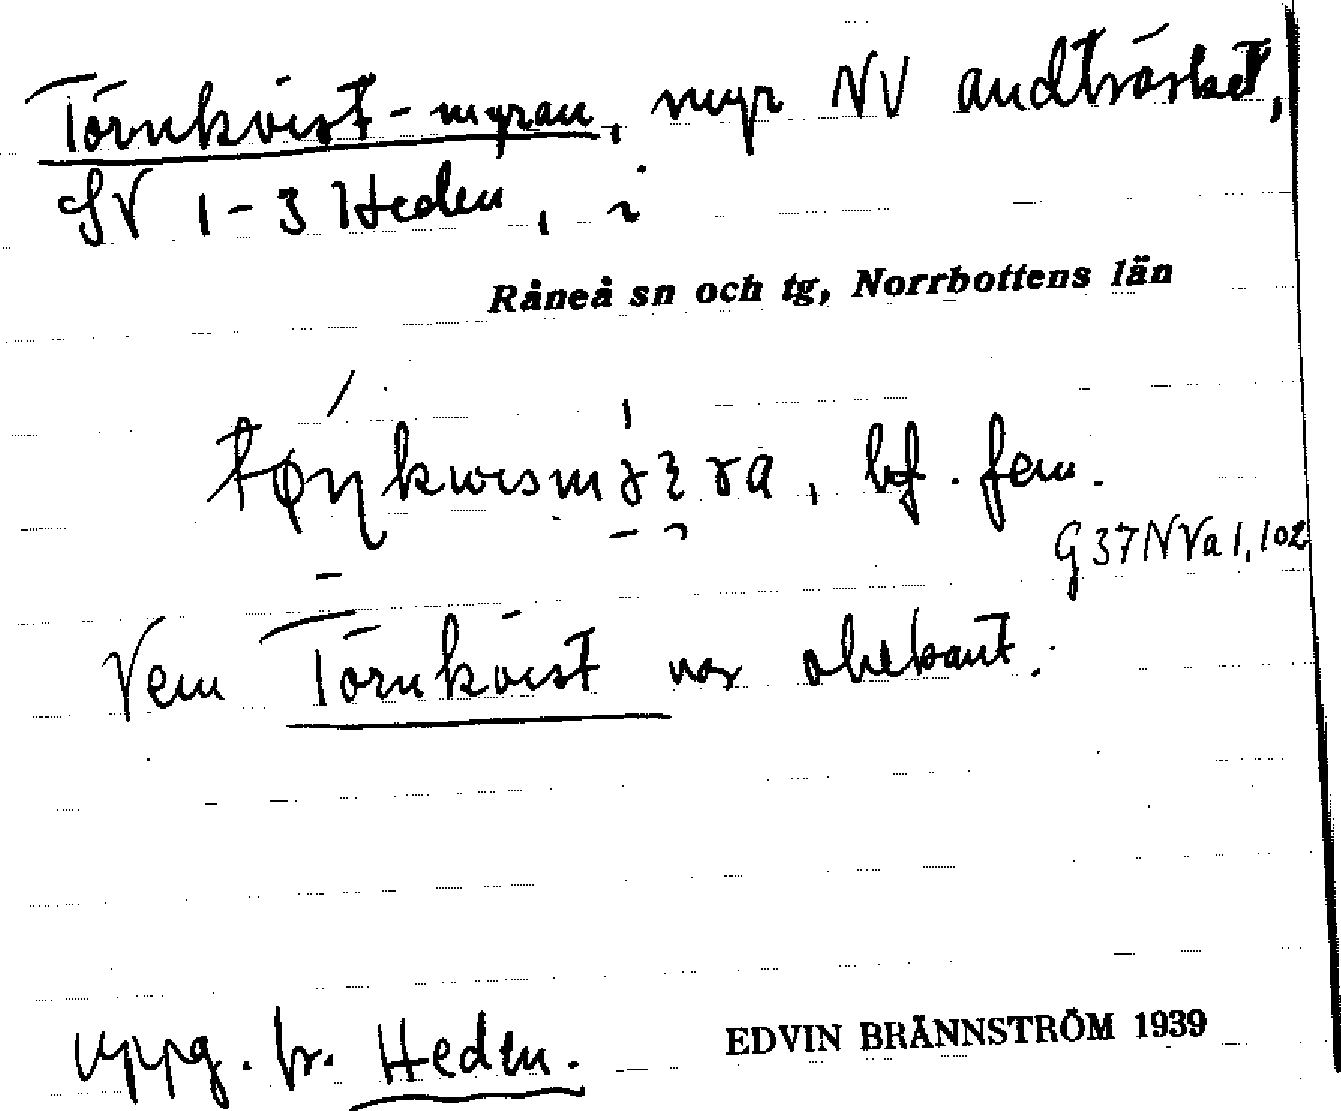 Törnkvist-myran, myr NV Andträsket,
SV 1-3 Heden, i
Råneå sn och tg, Norrbottens län
bf. fem.
G37NVa1,102
Vem Törnkvist var obekant.
Uppg. fr. Heden.
EDVIN BRÄNNSTRÖM 1939